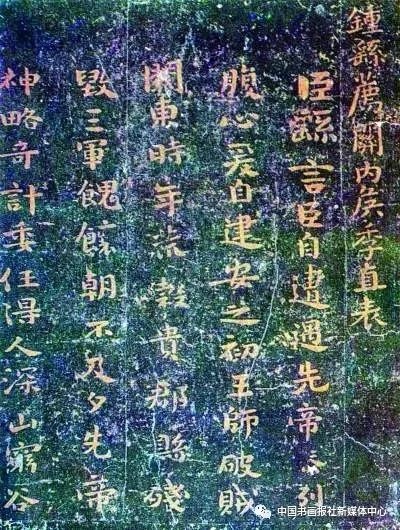 鍾繇薦關内侯季直表
臣繇言臣自遭遇先帝忝列
腹心爰自建安之初王師破賊
關東時年荒穀貴郡縣殘
毁三軍餽饟朝不及夕先帝
神略奇計委任得人深山窮谷
中国书画报社新媒体中心